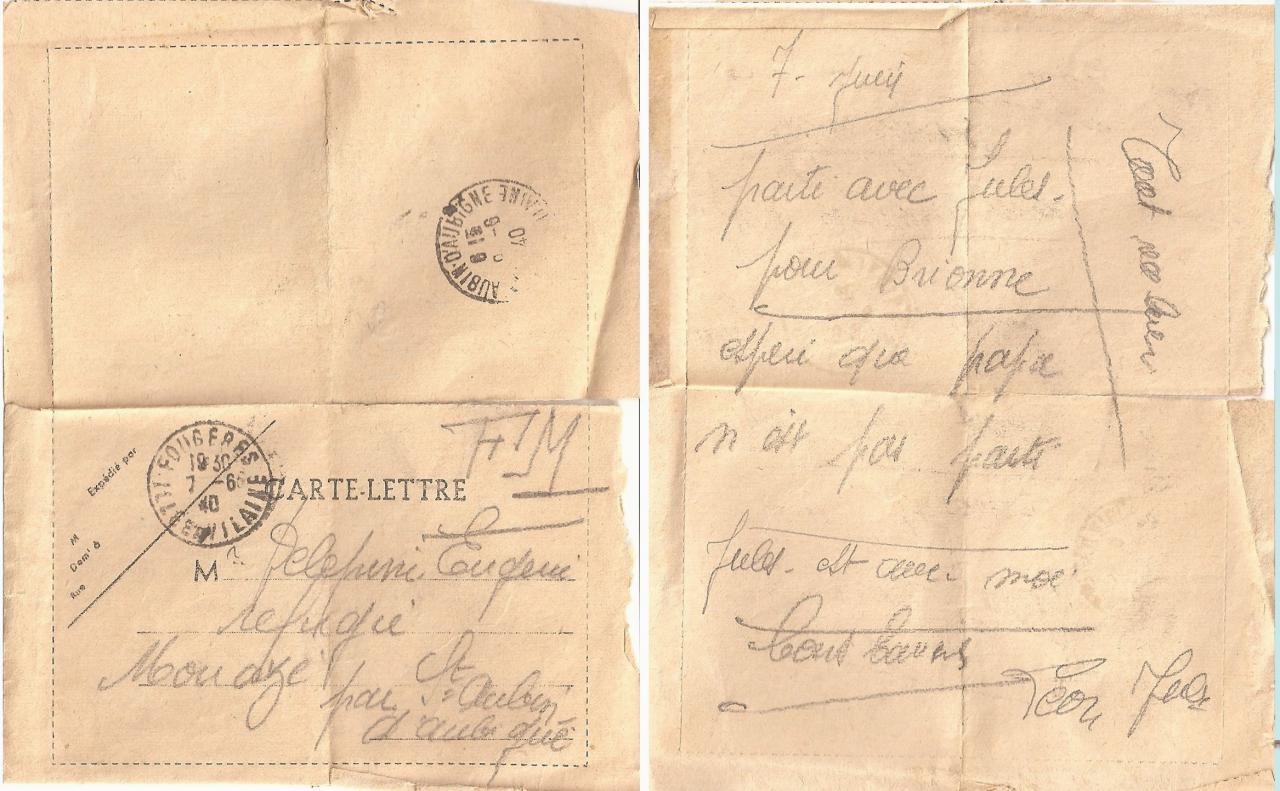 AUBIN-D'AUBIGNE
ILLE-VILAINE
40
FM
FOUGERES
19 30
7 -6
40
ILLE-&-VILAINE
Expédié par
M
Dom' à
Rue
CARTE-LETTRE
M Delepine Eugene
refugié
Mouazé
par St Aubin
d'aubigné
7- Juin
parti avec Jules.
pour Brionne
espere que papa
n'est pas parti
Jules. est avec moi
Bons baisers
Léon Jules
Tout va bien